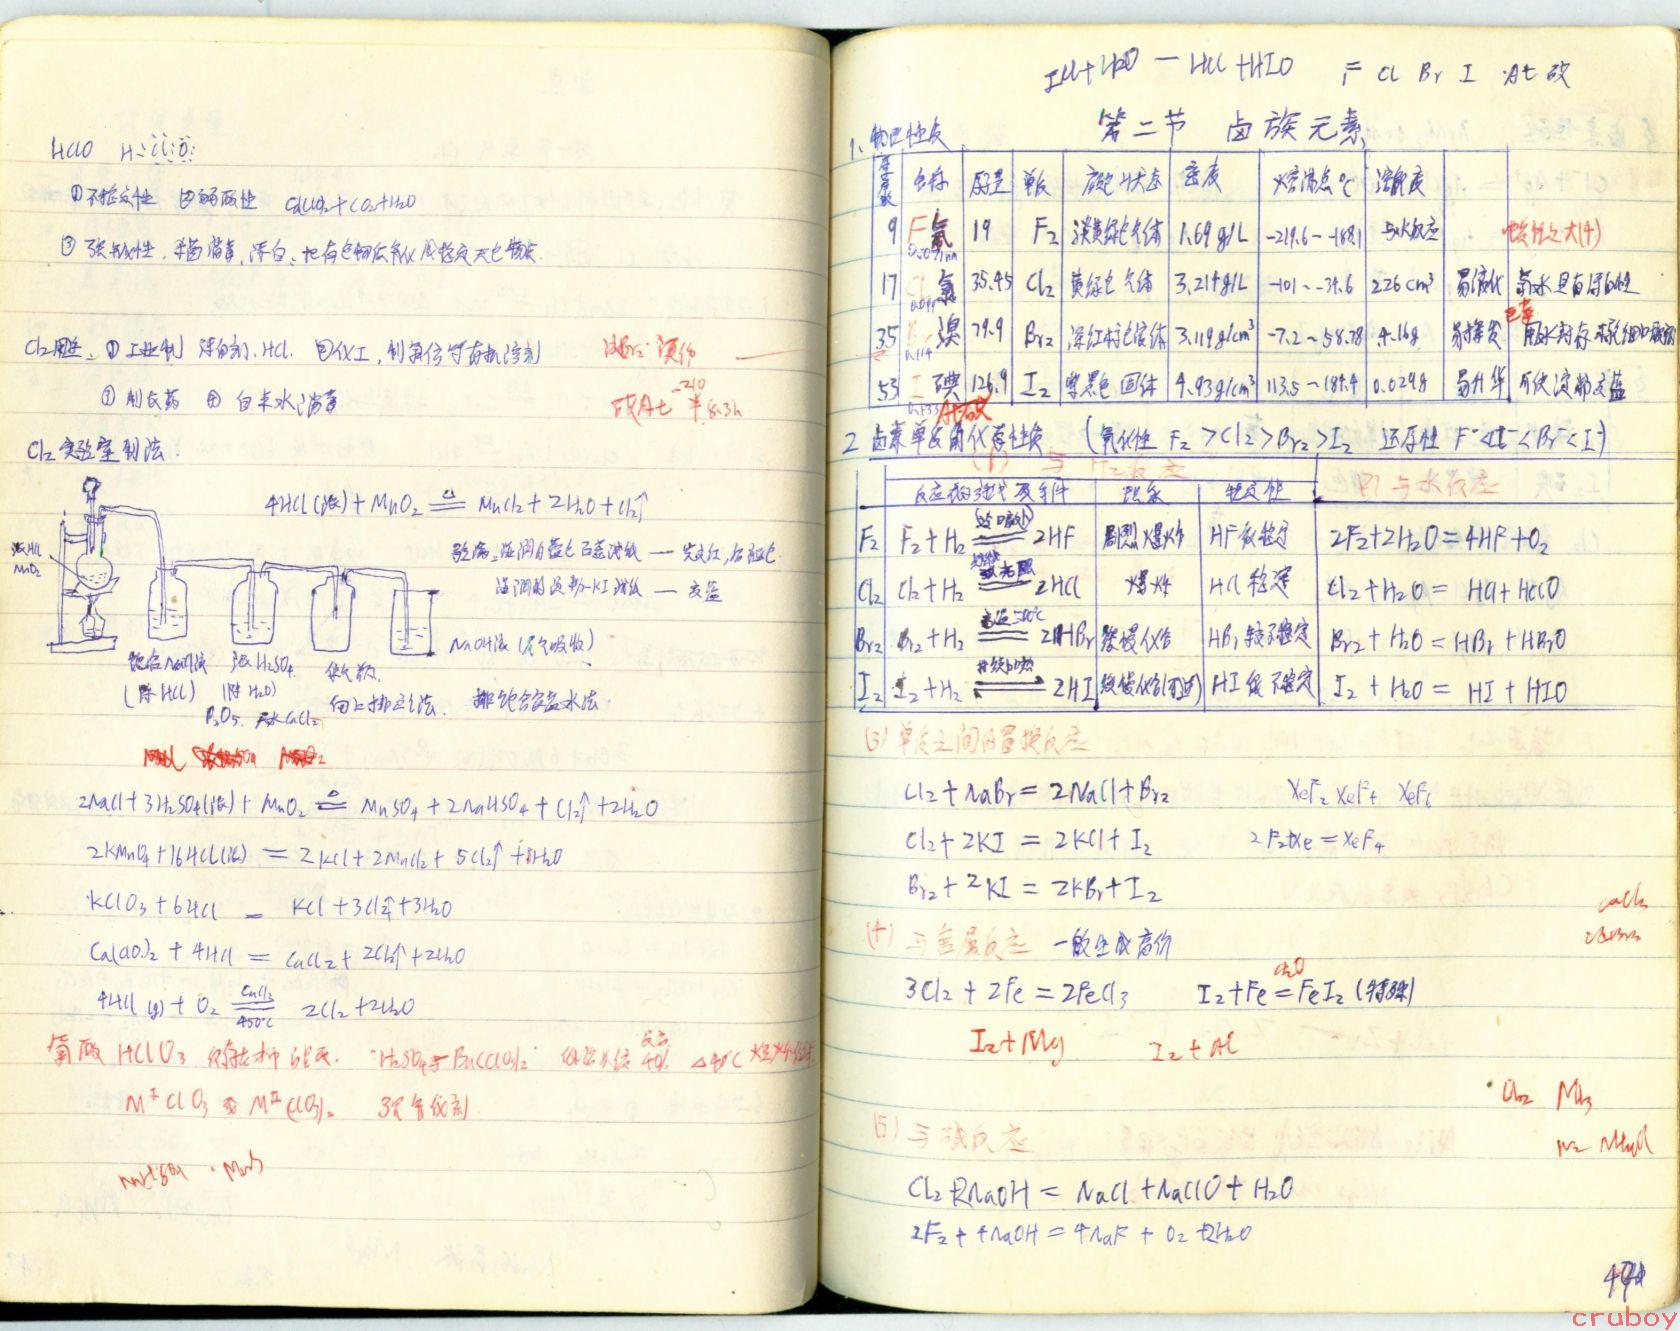 HClO H:
①不稳定性 ②弱酸性
③强氧化性,杀菌消毒,漂白
Cl₂用途:①工业制 漂白剂、HCl. ②化工,制氯仿等有机溶剂
③制农药 ④自来水消毒
砹At -210 半 8.3h
Cl₂实验室制法:
4HCl(浓)+MnO₂ =△= MnCl₂+2H₂O+Cl₂↑
浓HCl
MnO₂
验满:湿润蓝色石蕊试纸 — 先变红,后褪色
湿润的淀粉-KI试纸 — 变蓝
NaOH液(尾气吸收)
饱和NaCl液 浓H₂SO₄ 集气瓶
(除HCl) (除H₂O) 向上排空气法. 排饱和食盐水法.
P₂O₅. 无水CaCl₂
2NaCl+3H₂SO₄(浓)+MnO₂ =△= MnSO₄+2NaHSO₄+Cl₂↑+2H₂O
2KMnO₄+16HCl(浓) = 2KCl+2MnCl₂+5Cl₂↑+8H₂O
KClO₃+6HCl = KCl+3Cl₂↑+3H₂O
Ca(ClO)₂+4HCl = CaCl₂+2Cl₂↑+2H₂O
4HCl(g)+O₂ =CuCl₂ 450℃= 2Cl₂+2H₂O
氯酸 HClO₃ 40%
MᴵClO₃ 或 Mᴵᴵ(ClO₃)₂ 强氧化剂
ICl+H₂O — HCl+HIO F Cl Br I At 砹
第二节 卤族元素
1、物理性质
名称 原子量 单质 颜色状态 密度 熔沸点℃ 溶解度
9 F氟 19 F₂ 淡黄绿色气体 1.69g/L -219.6~-188.1 与水反应
17 Cl氯 35.45 Cl₂ 黄绿色气体 3.214g/L -101~-34.6 226cm³ 易液化 氯水具有漂白性
35 Br溴 79.9 Br₂ 深红棕色液体 3.119g/cm³ -7.2~58.78 4.16g 易挥发 用水封存
53 I碘 126.9 I₂ 紫黑色固体 4.93g/cm³ 113.5~184.4 0.029g 易升华 可使淀粉变蓝
At砹
2 卤素单质的化学性质 (氧化性 F₂>Cl₂>Br₂>I₂ 还原性 F⁻<Cl⁻<Br⁻<I⁻)
(1) 与H₂反应
反应式及条件 现象 稳定性 (2)与水反应
F₂ F₂+H₂ =冷暗处= 2HF 剧烈爆炸 HF很稳定 2F₂+2H₂O=4HF+O₂
Cl₂ Cl₂+H₂ =点燃或光照= 2HCl 爆炸 HCl稳定 Cl₂+H₂O= HCl+HClO
Br₂ Br₂+H₂ =高温500℃= 2HBr 缓慢化合 HBr较不稳定 Br₂+H₂O=HBr+HBrO
I₂ I₂+H₂ =持续加热= 2HI 缓慢化合(可逆) HI很不稳定 I₂+H₂O= HI+HIO
(3) 单质之间的置换反应
Cl₂+NaBr=2NaCl+Br₂ XeF₂ XeF₄ XeF₆
Cl₂+2KI = 2KCl+I₂ 2F₂+Xe=XeF₄
Br₂+2KI = 2KBr+I₂
(4) 与金属反应 一般生成高价
3Cl₂+2Fe=2FeCl₃ I₂+Fe=FeI₂ (特殊)
I₂+Mg I₂+Al
Cl₂ NH₃
N₂ NH₄Cl
(5) 与碱反应
Cl₂+2NaOH = NaCl+NaClO+H₂O
2F₂+4NaOH=4NaF+O₂+2H₂O
cruboy